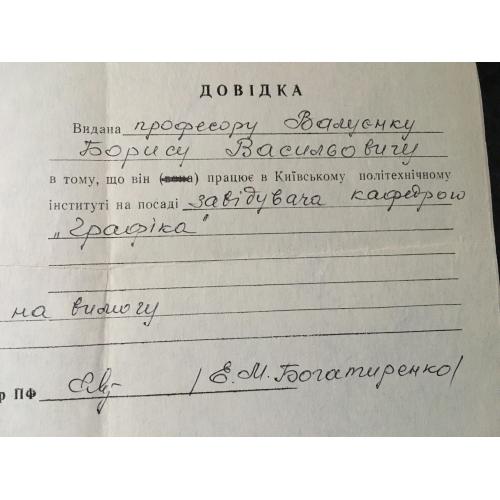 ДОВІДКА
Видана професору Валуєнку
Борису Васильовичу
в тому, що він (вона) працює в Київському політехнічному
інституті на посаді завідувача кафедрою
„Графіка"
на вимогу
р ПФ / Є.М. Богатиренко/